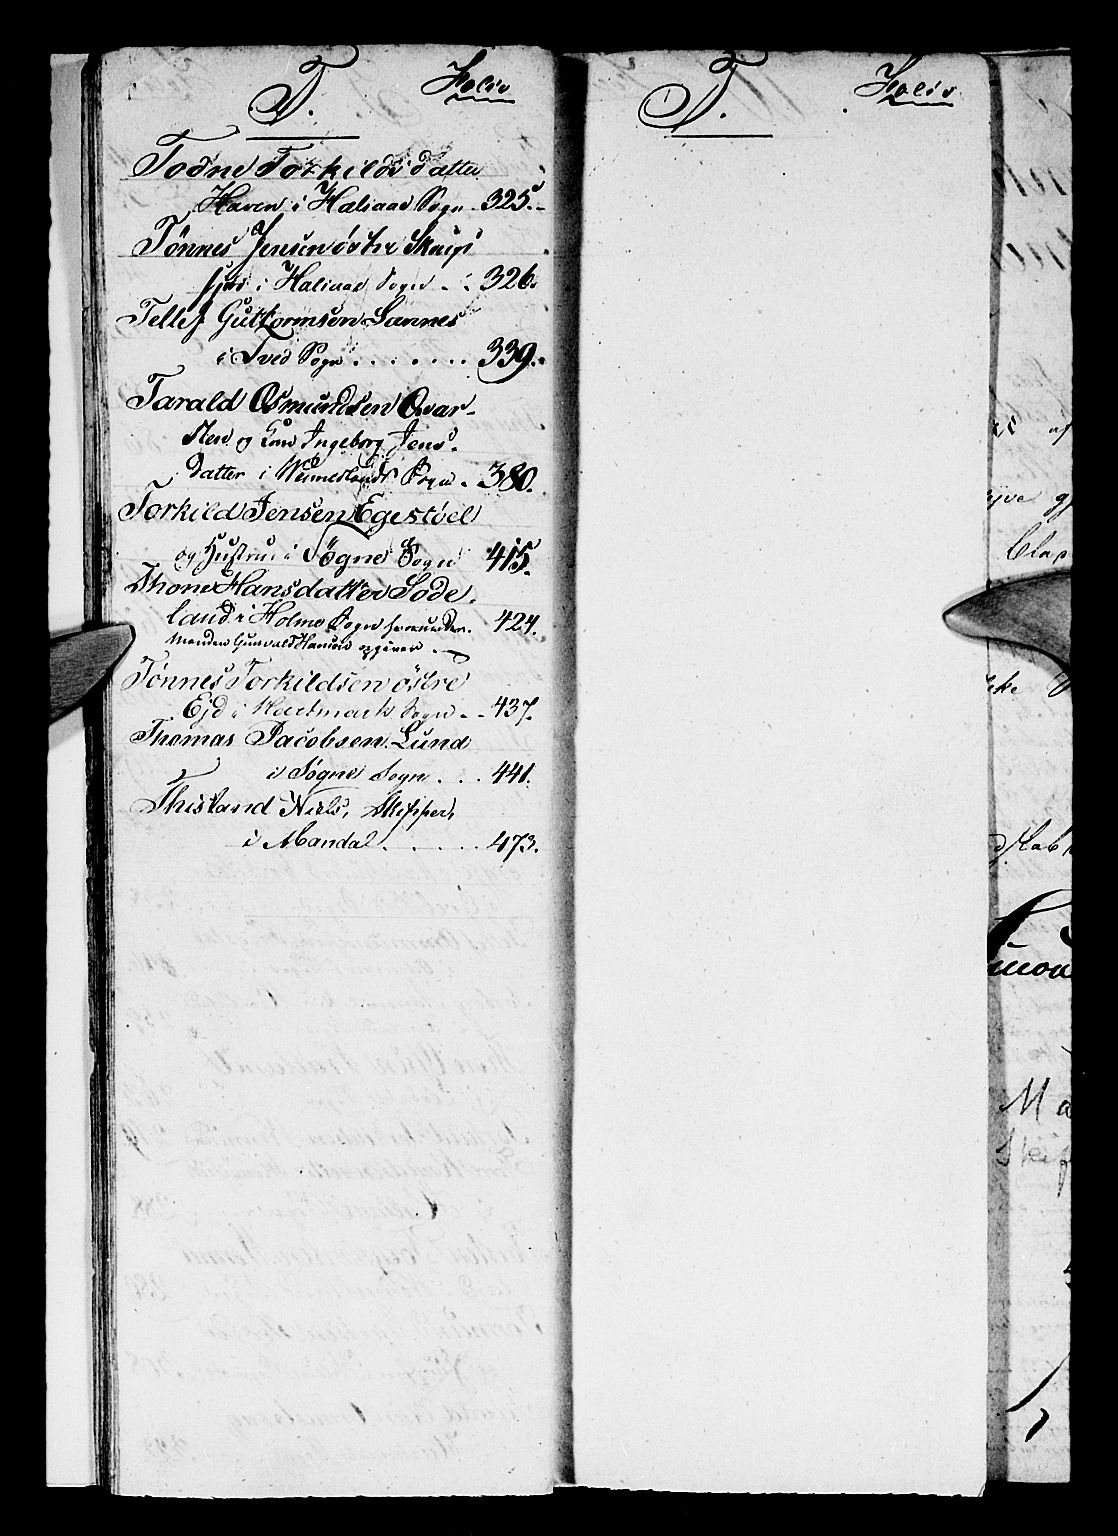 T. Folio
Todne Torkilds datter
Haven i Haliaas Sogn - 325. -
Tønnes Jensen østre Skaip
fjed i Haliaas Sogn . . 326.
Tellef Guttormsen Sannes
i Tved Sogn . . . . . . 339.
Tarald Osmundsen Qvar-
sten og Kone Ingeborg Jens-
datter i Wennesland Sogn . 380.
Torkild Jensen Egestøel
og Hustru i Søgne Sogn 415.
Thone Hansdatter Lode-
land i Holme Sogn 424.
Manden Gunvald Hansen opgiven
Tønnes Torkildsen østre
Ejd i Hartmark Sogn . . 437.
Thomas Jacobsen Lund
i Søgne Sogn . . . 441.
Thisland Niels, Skipper,
i Mandal . . . . . . 473.
T. Folio